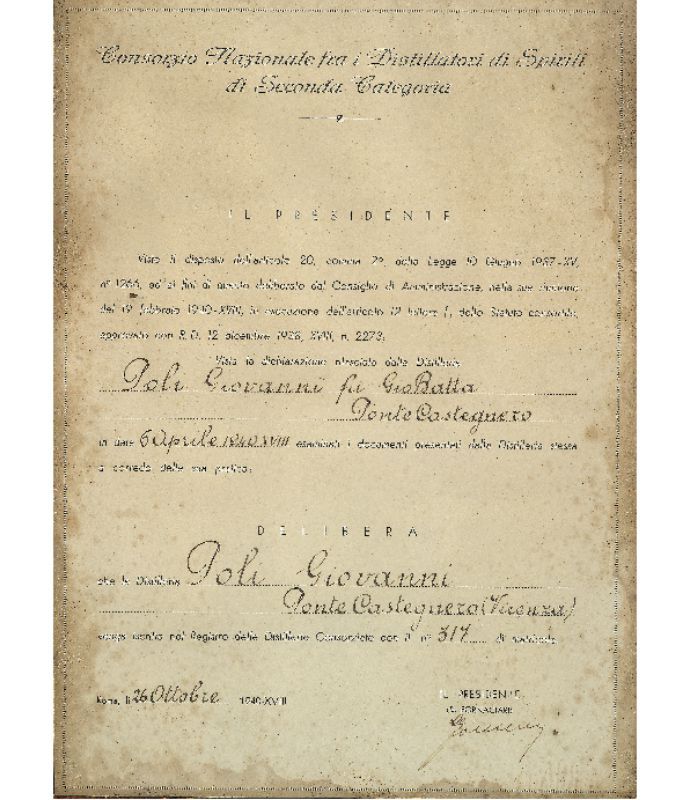 Consorzio Nazionale fra i Distillatori di Spiriti
di Seconda Categoria
IL PRESIDENTE
Visto il disposto dell'articolo 20, comma 2°, della Legge 10 Giugno 1937-XV,
n° 1266, ed ai fini di quanto deliberato dal Consiglio di Amministrazione, nella sua riunione
del 19 febbraio 1940-XVIII, in esecuzione dell'articolo 12 lettera f, dello Statuto consortile,
approvato con R. D. 12 dicembre 1938, XVII, n. 2273;
Vista la dichiarazione rilasciata dalla Distilleria
Poli Giovanni fu GioBatta
Ponte Castegnero
in data 6 Aprile 1940 XVIII esaminati i documenti presentati dalla Distilleria stessa
a corredo della sua pratica;
DELIBERA
che la Distilleria Poli Giovanni
Ponte Castegnero (Vicenza)
venga iscritta nel Registro delle Distillerie Consorziate con il n° 317 di matricola
Roma, lì 26 Ottobre 1940-XVIII
IL PRESIDENTE
FORNACIARI